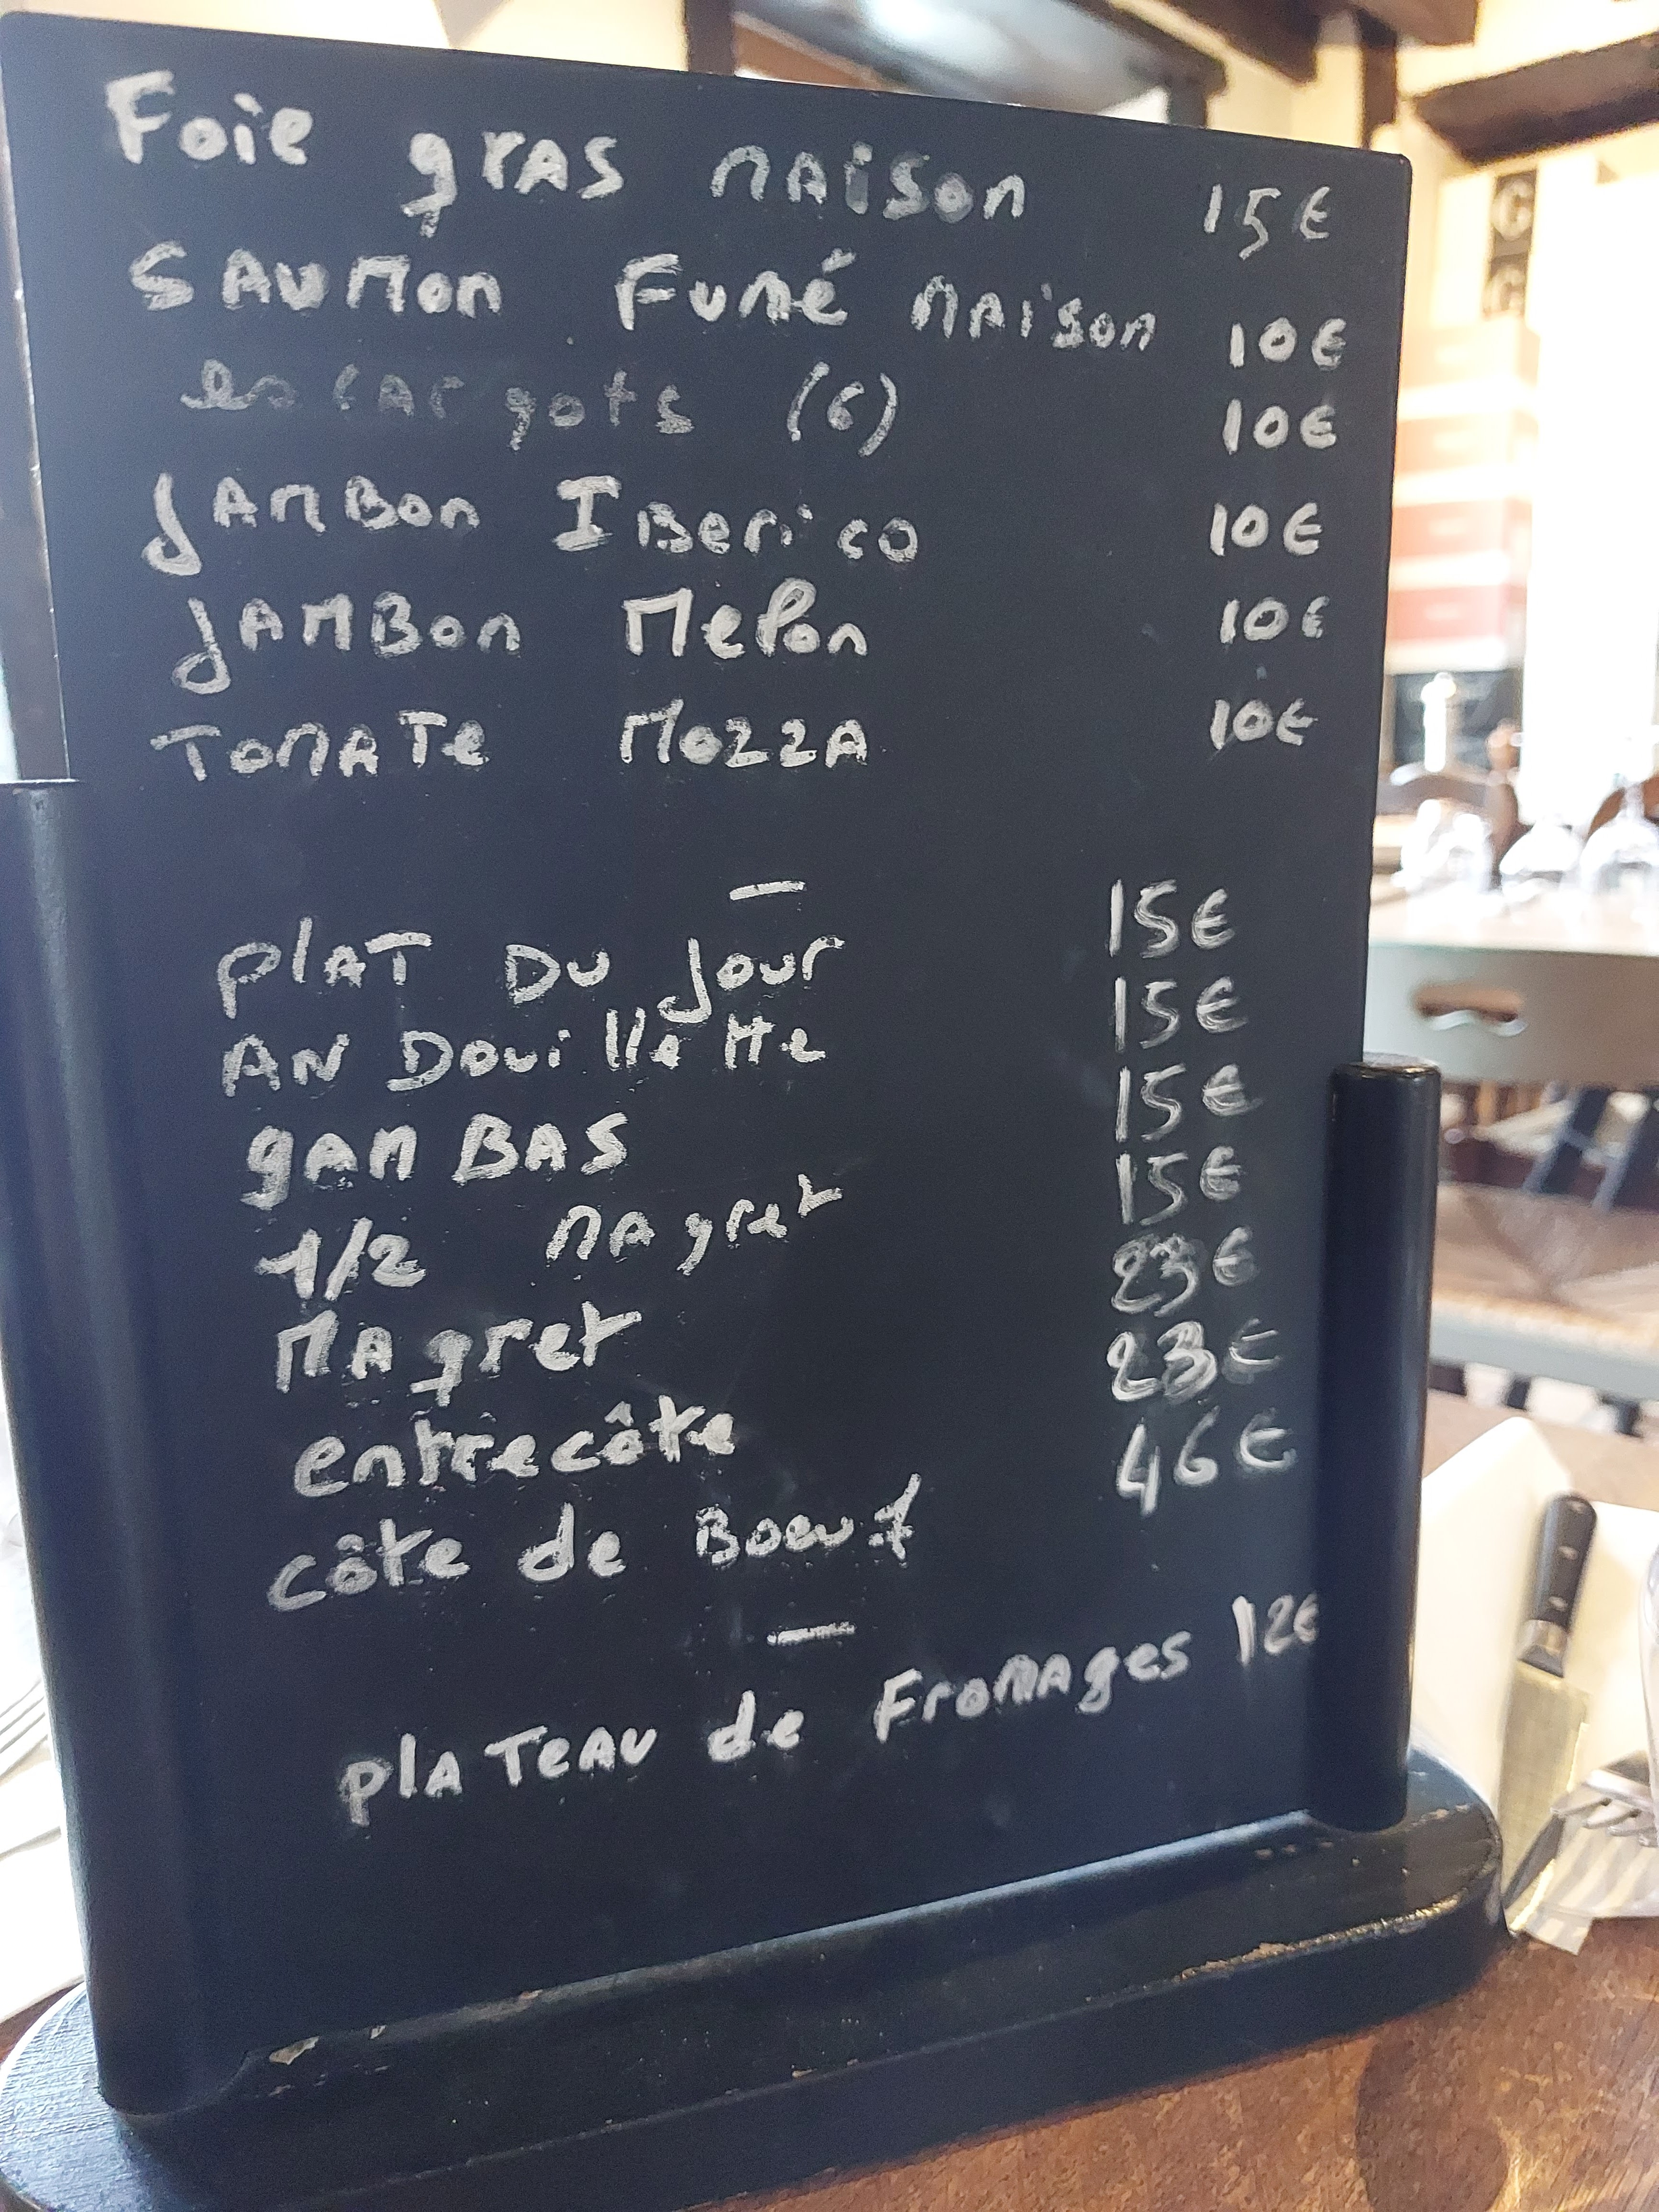 Foie gras maison 15€
SAUMON Fumé maison 10€
escargots (6) 10€
JAMBON IBerico 10€
JAMBON Melon 10€
TOMATe MOZZA 10€
—
plAT DU jour 15€
ANDouillette 15€
gAMBAS 15€
1/2 MAgret 15€
MAgret 23€
entrecôte 23€
côte de Boeuf 46€
—
plATeAU de FroMAges 12€